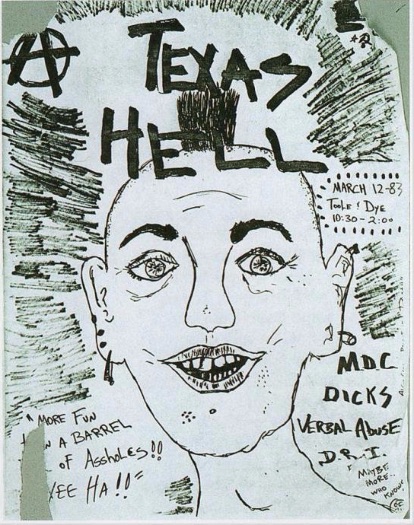 TEXAS
HELL
MARCH 12-83
TOOLE & DYE
10:30-2:00
MDC
DICKS
VERBAL ABUSE
D.R.I.
MAYBE
MORE..
WHO
KNOWS
"MORE FUN
A BARREL
OF ASSHOLES!!
YEE HA!!"